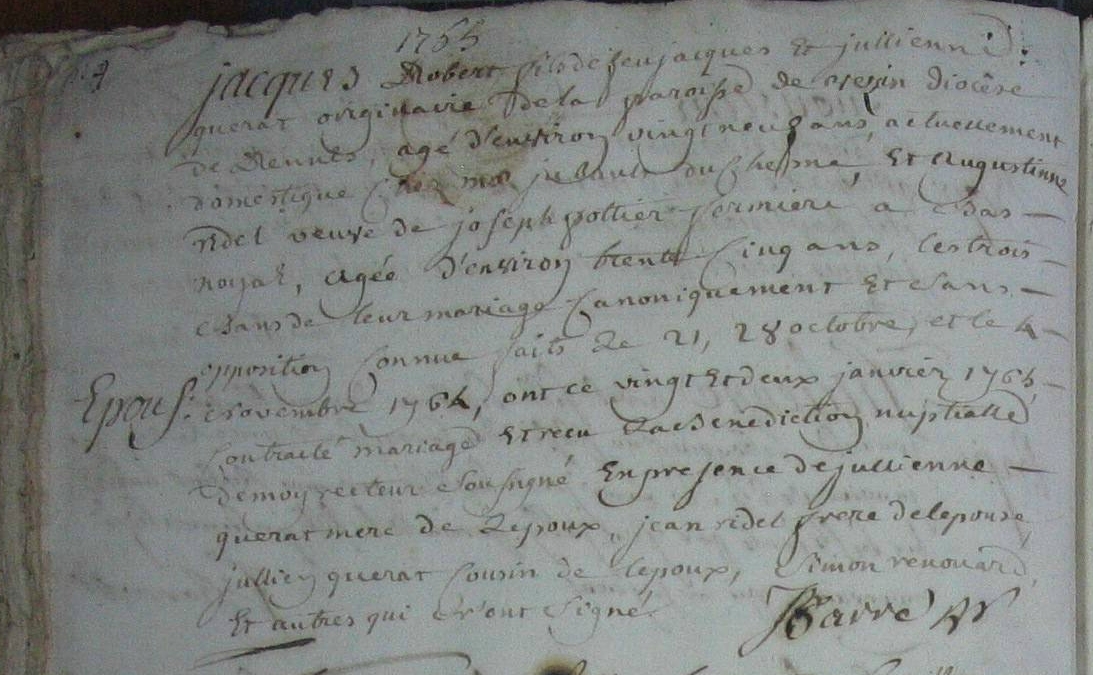 1765
jacques Robert fils de feu jacques Et jullienne
querat originaire de la paroisse de vesin diocese
de Rennes, agé d'environ vingt neuf ans, actuellement
domestique Chez mr jubault du Chesne, Et augustinne
ridel veuve de joseph pottier fermiere a Bas
noyal, agée d'environ trente Cinq ans, les trois
Bans de leur mariage Canoniquement Et Sans
opposition Connue faits Le 21, 28 octobre, et le 4
Epous. novembre 1764, ont ce vingt Et deux janvier 1765
Contracté mariage Et recu La Benediction nuptialle
de moy recteur Soussigné En presence de jullienne
querat mere de Lepoux, jean ridel frere de lepouse,
jullien querat Cousin de lepoux, Simon renouard,
Et autres qui n'ont Signé.
Barré Rr